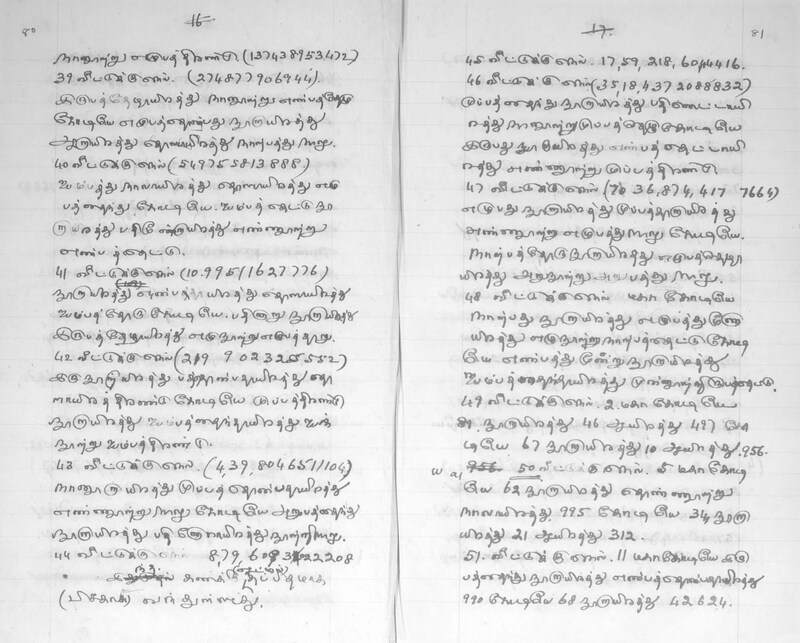 80
16
நானூற்று எழுபத்திரண்டு (137438953472)
39 வீட்டுக்கு எல். (274877906944).
இருபத்தேழாயிரத்து நானூற்று எண்பத்தேழு
கோடியே எழுபத்தொன்பது நூறாயிரத்து
ஆறாயிரத்து தொளாயிரத்து நாற்பத்து நாலு.
40 வீட்டுக்கு எல் (549755813888)
ஐம்பத்து நாலாயிரத்து தொளாயிரத்து எழு
பத்தைந்து கோடியே. ஐம்பத்தெட்டு நூ
றாயிரத்து பதிமூன்றாயிரத்து எண்ணூற்று
எண்பத்தெட்டு.
41 வீட்டுக்கு எல் (10.99511627776)
நூறாயிரத்து தொளாயிரத்து
ஐம்பத்தோரு கோடியே. பதினாறு நூறாயிரத்து
இருபத்தேழாயிரத்து எழுநூற்று எழுபத்தாறு.
42 வீட்டுக்கு எல் (219 9 023255552)
இரு நூறாயிரத்து பத்தொன்பதாயிரத்து தொ
ளாயிரத்திரண்டு கோடியே முப்பத்திரண்டு
நூறாயிரத்து ஐம்பத்தைந்தாயிரத்து ஐந்
நூற்று ஐம்பத்திரண்டு.
43 வீட்டுக்கு எல். (4,39,8046511104)
நாலு நூறாயிரத்து முப்பத்தொன்பதாயிரத்து
எண்ணூற்று நாலு கோடியே அறுபத்தைந்து
நூறாயிரத்து பதினோராயிரத்து நூற்றிநாலு.
44 வீட்டுக்கு எல் 8,79,6093022208
கணக்கு
81
17
45 வீட்டுக்கு எல். 17,59,218,6044416.
46 வீட்டுக்கு எல் (35,18,4372088832)
முப்பத்தைந்து நூறாயிரத்து பதினெட்டாயி
ரத்து நானூற்று முப்பத்தேழு கோடியே
இருபது நூறாயிரத்து எண்பத்தெட்டாயி
ரத்து எண்ணூற்று முப்பத்திரண்டு.
47 வீட்டுக்கு எல் (70 36,874,417 7664)
எழுபது நூறாயிரத்து முப்பத்தாறாயிரத்து
எண்ணூற்று எழுபத்துநாலு கோடியே.
நாற்பத்தொரு நூறாயிரத்து எழுபத்தேழா
யிரத்து அறுநூற்று அறுபத்து நாலு.
48 வீட்டுக்கு எல் மகா கோடியே
நாற்பது நூறாயிரத்து எழுபத்து மூணா
யிரத்து எழுநூற்று நாற்பத்தெட்டு கோடி
யே எண்பத்து மூன்று நூறாயிரத்து
ஐம்பத்தைந்தாயிரத்து முன்னூற்றிருபத்தெட்டு.
49 வீட்டுக்கு எல். 2. மகா கோடியே
81. நூறாயிரத்து 46 ஆயிரத்து 497 கோ
டியே 67 நூறாயிரத்து 10 ஆயிரத்து. 956.
50 வீட்டுக்கு எல். 5 மகா கோடி
யே 62 நூறாயிரத்து தொண்ணூற்று
நாலாயிரத்து. 995 கோடியே 34, நூறா
யிரத்து 21 ஆயிரத்து 312.
51. வீட்டுக்கு எல். 11 மகாகோடியே இரு
பத்தைந்து நூறாயிரத்து எண்பத்தொன்பதாயிரத்து
990 கோடியே 68 நூறாயிரத்து 42624.